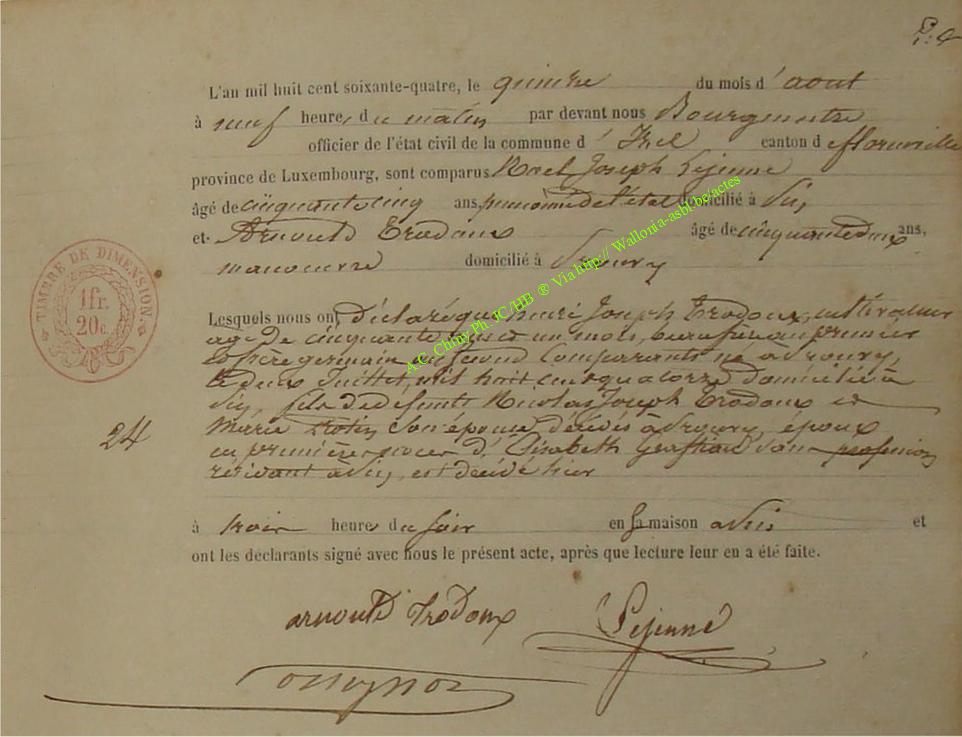 L'an mil huit cent soixante-quatre, le quinze du mois d'aout
à neuf heures du matin par devant nous Bourgmestre
officier de l'état civil de la commune d'Izel canton d florenville
province de Luxembourg, sont comparus Noel Joseph Lejenne
âgé de cinquante cinq ans, pensionné de l'état domicilié à
et Arnould Trodoux âgé de cinquante deux ans,
manoeuvre domicilié à
Lesquels nous ont déclaré que henri Joseph Trodoux, cultivateur
age de cinquante ans et un mois, beaufrère au premier
et frère germain au second Comparants né a
le deux Juillet, mil huit cent quatorze domicilié à
fils de défunts Nicolas Joseph Trodoux et
Marie son épouse, décédés à époux
en premières noces d'Elisabeth sans profession
24
est décédé hier
à trois heures du soir en sa maison a et
ont les déclarants signé avec nous le présent acte, après que lecture leur en a été faite.
arnould Trodoux Lejenne
TIMBRE DE DIMENSION
1 fr.
20 c.
A.C. Chiny Ph. JC / HB ® Via http:// Wallonia-asbl-be/actes